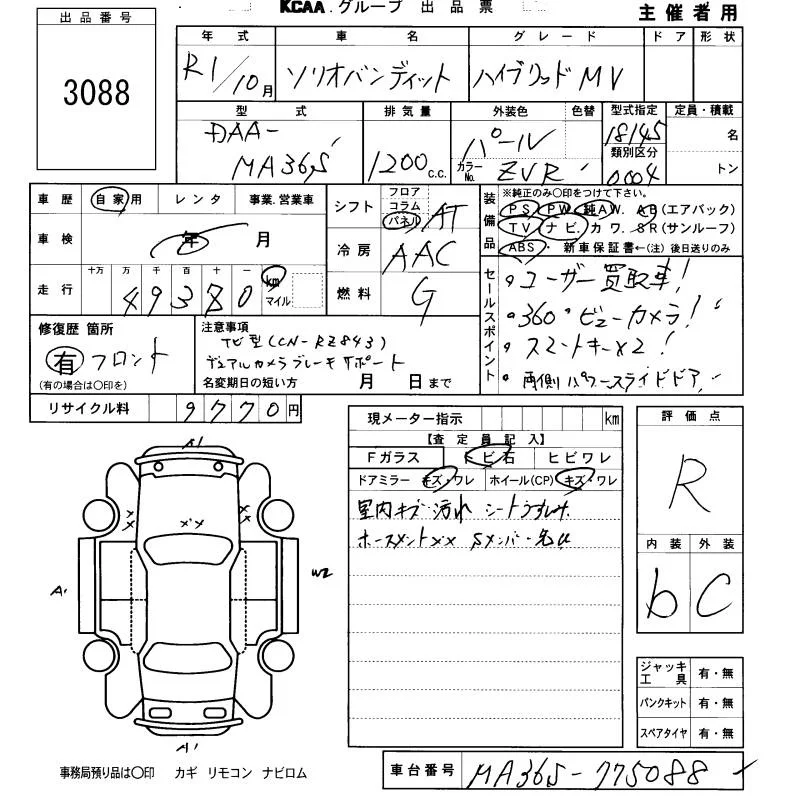 KCAA.グループ 出品票
主催者用
出品番号
3088
年式 車名 グレード ドア 形状
R1/10月 ソリオバンディット ハイブリッドMV
型式 排気量 外装色 色替 型式指定 定員・積載
DAA-
MA36S 1200c.c. パール カラーNo. ZVR 18145 名
類別区分
0004 トン
車歴 自家用 レンタ 事業.営業車
車検 年 月
走行 十万 万 千 百 十 一
49380 km マイル
シフト フロア コラム パネル AT
冷房 AAC
燃料 G
装備品 ※純正のみ○印をつけて下さい。
PS PW 純AW. AB(エアバック)
TV ナビ. カワ. SR(サンルーフ)
ABS ・ 新車保証書←(注) 後日送りのみ
セールスポイント
ユーザー買取車!
360°ビューカメラ!
スマートキー×2!
両側パワースライドドア
修復歴 箇所
有 フロント
(有の場合は○印を)
注意事項
ナビ型(CN-RZ843)
デュアルカメラブレーキサポート
名変期日の短い方 月 日まで
リサイクル料 9770円
現メーター指示 km
【査定員記入】
Fガラス トビ石 ヒビワレ
ドアミラー キズ・ワレ ホイール(CP) キズ・ワレ
室内キズ汚れ シート
評価点
R
内装 外装
b C
A1
××
A1 W2
A1
ジャッキ工具 有・無
パンクキット 有・無
スペアタイヤ 有・無
事務局預り品は○印 カギ リモコン ナビロム
車台番号 MA36S-775088